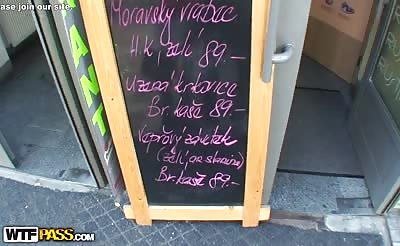 ase join our site
Moravský vrabec
H.K, zelí 89.-
Uzená krkovice
Br. kaše 89.-
Vepřový závitek
(zelí, ang slanina)
Br. kaše 89.-
ANT
WTFPASS.COM